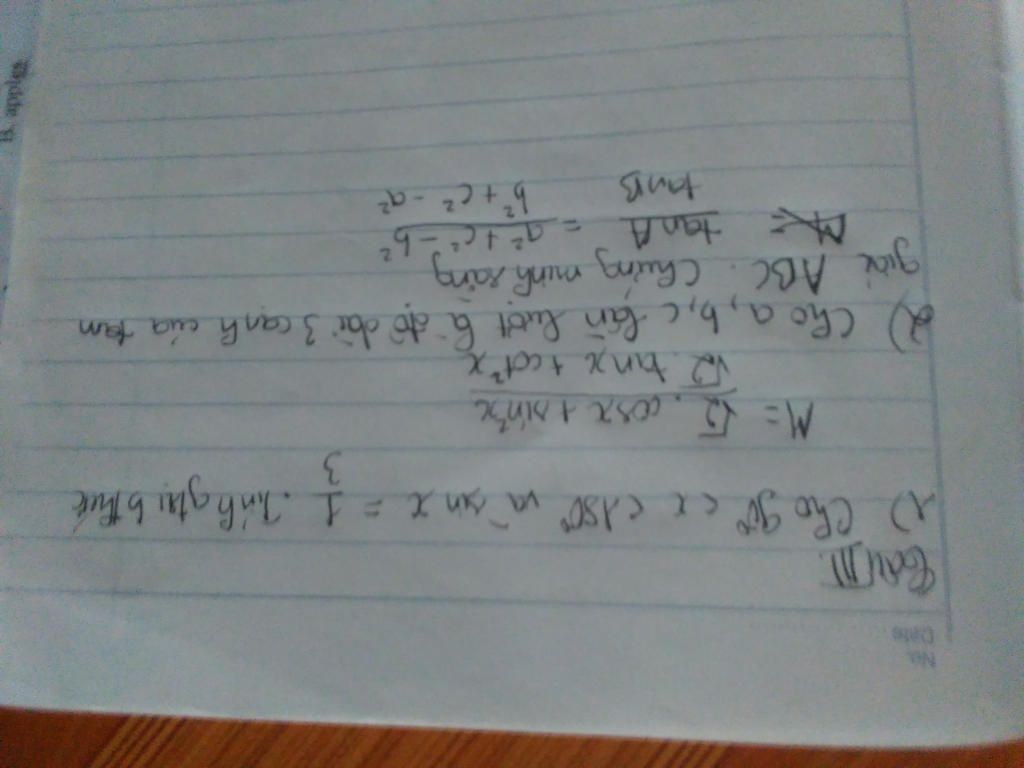 No.
Date
Câu III.
1) Cho 90° < x < 180° và sin x = 1/3. Tính gtrị b thức
M = (√2 . cosx + sin²x) / (√2 . tanx + cot²x)
2) Cho a, b, c lần lượt là độ dài 3 cạnh của tam
giác ABC. Chứng minh rằng
tanA / tanB = (a² + c² - b²) / (b² + c² - a²)
B. apples